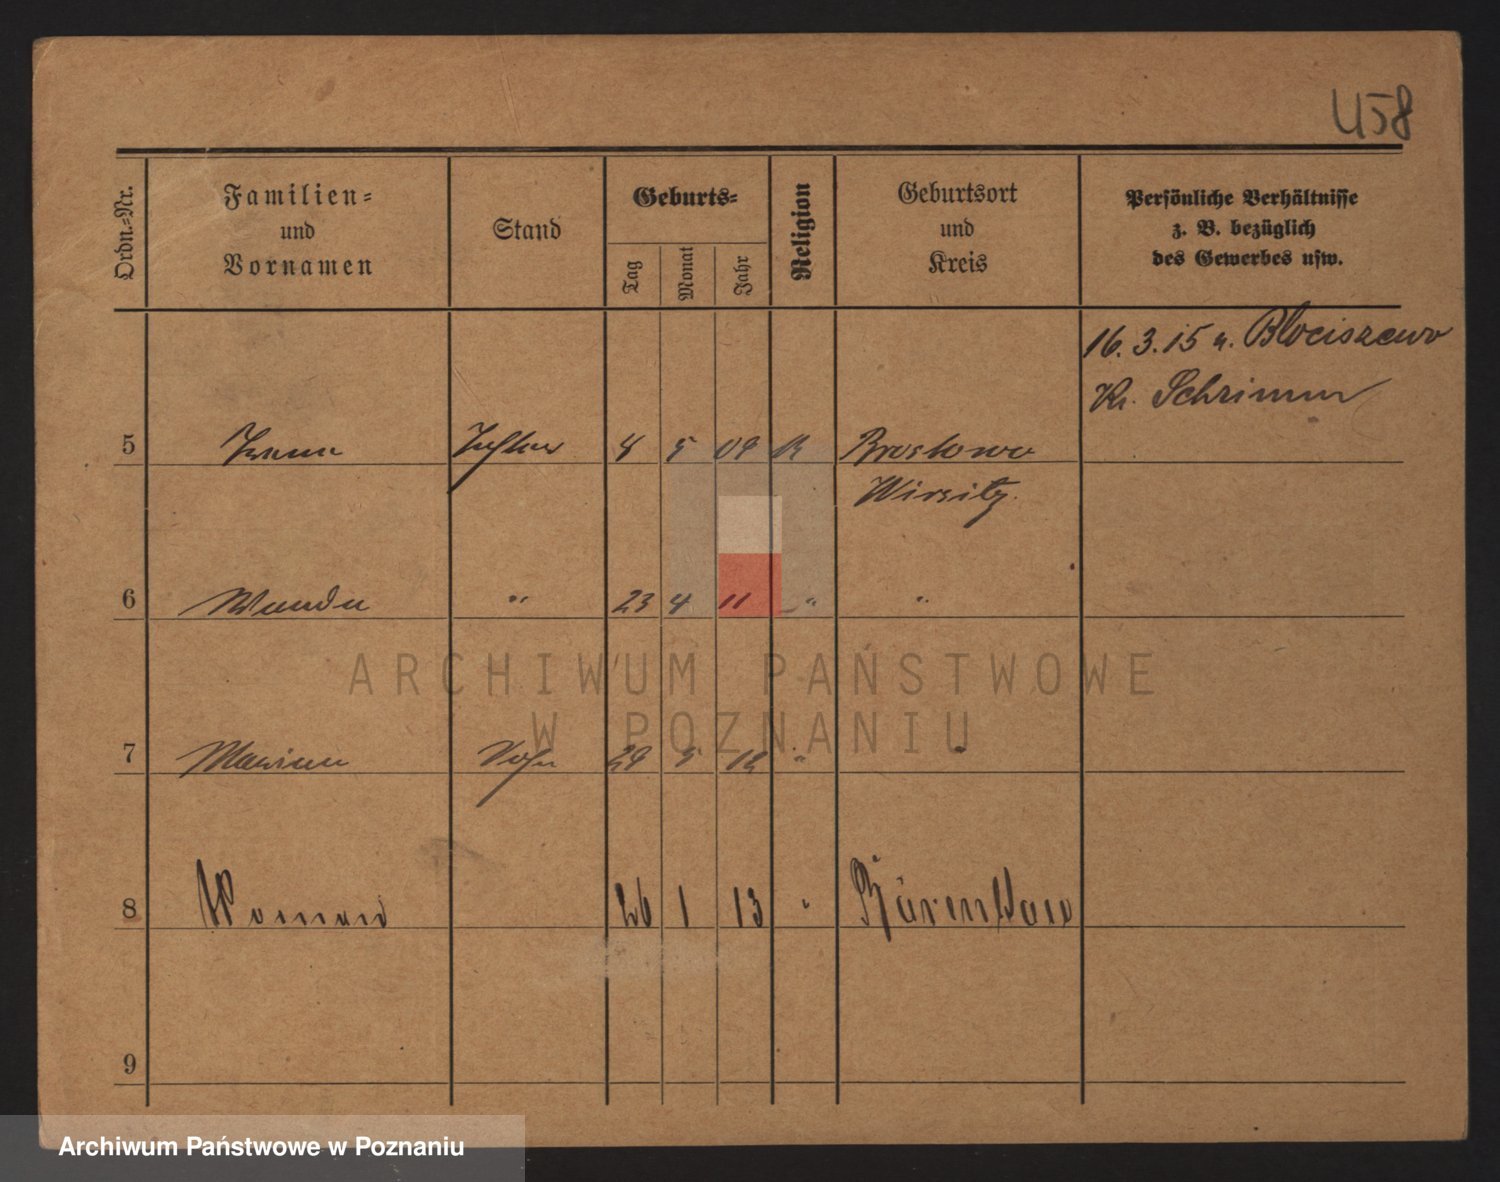 U58
Ordn.-Nr.
Familien-
und
Vornamen
Stand
Geburts-
Tag
Monat
Jahr
Religion
Geburtsort
und
Kreis
Persönliche Verhältnisse
z. B. bezüglich
des Gewerbes usw.
16. 3. 15 n. Blociszewo
Kr. Schrimm
5 Irena Tochter 8 5 09 K Brostowo
Wirsitz.
6 Wanda " 23 4 11 " "
ARCHIWUM PAŃSTWOWE
W POZNANIU
7 Marian Sohn 29 5 12 " "
8 Roman 26 1 13 "
9
Archiwum Państwowe w Poznaniu